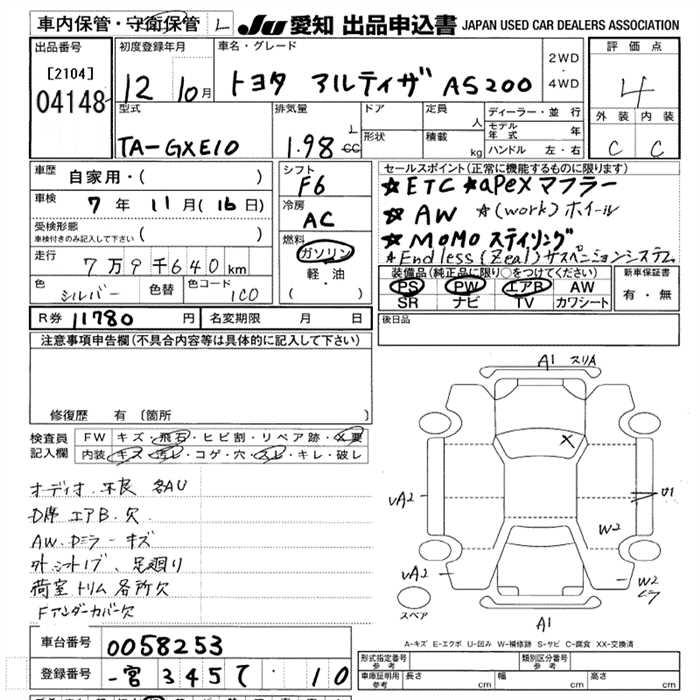 車内保管・守衛保管 L JU 愛知 出品申込書 JAPAN USED CAR DEALERS ASSOCIATION
出品番号 初度登録年月 車名・グレード 評価点
[2104] 04148 12 10月 トヨタ アルティザ AS200 2WD・4WD 4
外装 内装
C C
型式 排気量 ドア 定員 人 ディーラー・並行
TA-GXE10 1.98 L cc 形状 積載 kg モデル年式 年
ハンドル 左・右
車歴 自家用・( )
シフト F6
セールスポイント(正常に機能するものに限ります)
☆ETC ★apexマフラー
☆AW ☆(work)ホイール
☆MOMO スティリング
☆Endless(Zeal)サスペンションシステム
車検 7年 11月(16日)
冷房 AC
受検形態 車検付きのみ記入して下さい ( )
燃料 ガソリン 軽油 ( ・ )
走行 7万9千640km
色 シルバー 色替 色コード 1C0
装備品(純正品に限り○をつけてください) 新車保証書
PS PW エアB AW
SR ナビ TV カワシート
有・無
R券 11780円 名変期限 月 日
後日品
注意事項申告欄(不具合内容等は具体的に記入して下さい)
修復歴 有 〔箇所 〕
検査員記入欄 FW キズ・飛石・ヒビ割・リペア跡・X要
内装 キズ・汚レ・コゲ・穴・スレ・キレ・破レ
オーディオ.不良 各AU
D席 エアB.欠.
AW.Dミラーキズ
荷室トリム 各所欠
Fアンダーカバー欠
A1 スリA
X
UA2
U1
W2
UA2
W2
スペア
A1
A-キズ E-エクボ U-凹み W-補修跡 S-サビ C-腐食 XX-交換済
車台番号 0058253
登録番号 3457 10
形式指定番号 参考 類別区分番号 参考
車庫証明用 参考 長さ cm 幅 cm 高さ cm